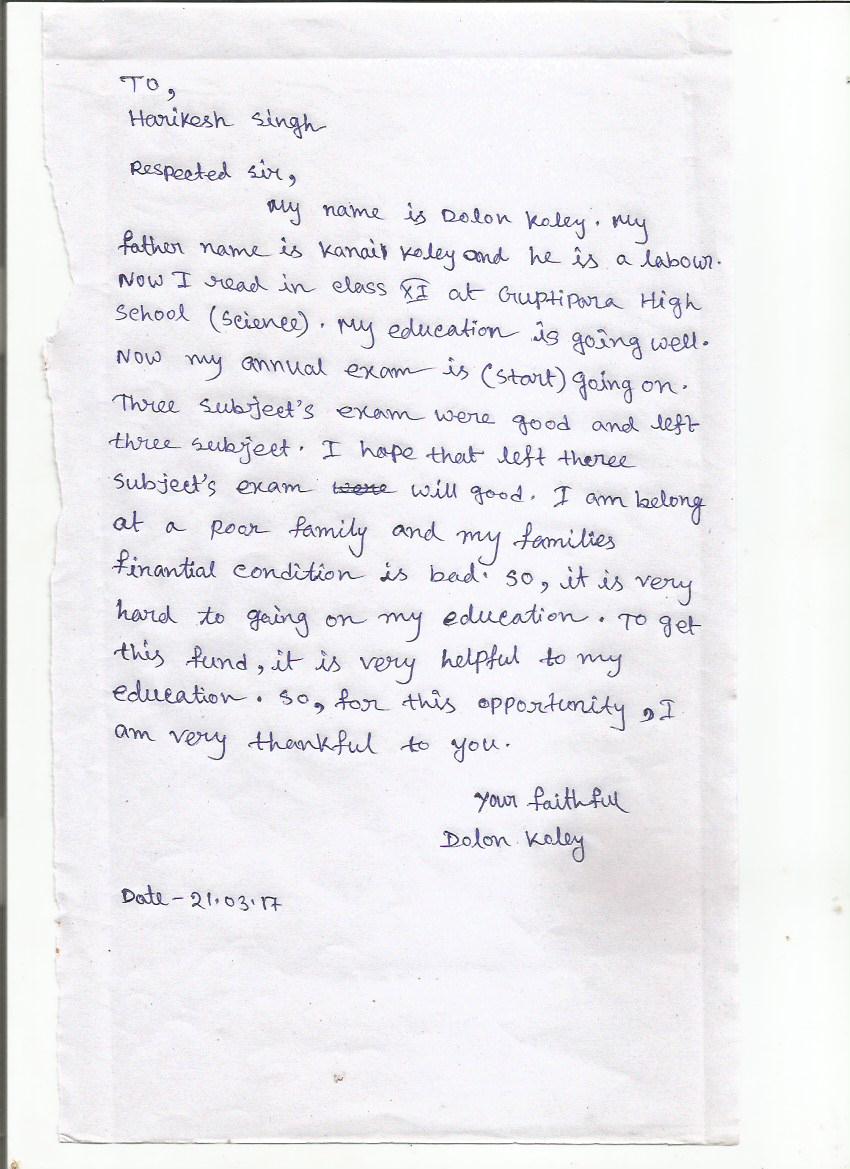 To,
Harikesh Singh
Respected sir,
My name is Dolon Koley. My
father name is Kanai Koley and he is a labour.
Now I read in class XI at Guptipara High
School (Science). My education is going well.
Now my annual exam is (start) going on.
Three subject's exam were good and left
three subject. I hope that left theree
subject's exam were will good. I am belong
at a poor family and my families
finantial condition is bad. So, it is very
hard to going on my education. To get
this fund, it is very helpful to my
education. So, for this opportunity, I
am very thankful to you.
Your faithful
Dolon Koley
Date - 21.03.17